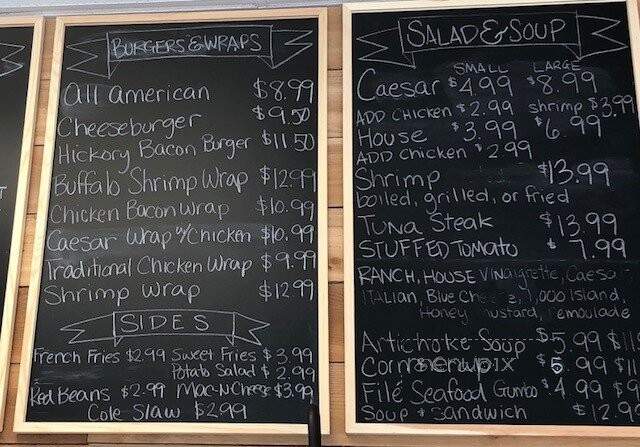 BURGERS & WRAPS
All American $8.99
Cheeseburger $9.50
Hickory Bacon Burger $11.50
Buffalo Shrimp Wrap $12.99
Chicken Bacon Wrap $10.99
Caesar Wrap w/Chicken $10.99
Traditional Chicken Wrap $9.99
Shrimp Wrap $12.99
SIDES
French Fries $2.99 Sweet Fries $3.99
Potato Salad $2.99
Red Beans $2.99 Mac-N-Cheese $3.99
Cole Slaw $2.99
SALAD & SOUP
SMALL LARGE
Caesar $4.99 $8.99
ADD Chicken $2.99 shrimp $3.99
House $3.99 $6.99
ADD Chicken $2.99
Shrimp $13.99
boiled, grilled, or fried
Tuna Steak $13.99
STUFFED Tomato $7.99
RANCH, HOUSE Vinaigrette, Caesa
ITALIAN, Blue 1,000 Island,
Honey ustard, emoulade
Artichoke Soup $5.99
Corn 5.99
menupix
Filé Seafood Gumbo $4.99
Soup & Sandwich $12.9